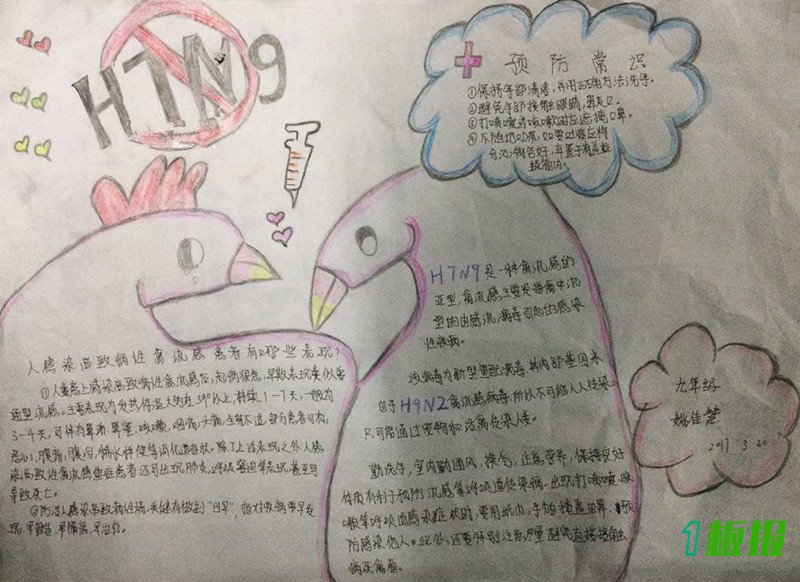 H7N9
预防常识
①保持手部清洁，并用正确方法洗手。
②避免手部接触眼睛，鼻及口。
③打喷嚏或咳嗽时应遮掩口鼻。
④不随地吐痰，如要吐痰应将
分泌物包好，弃置于有盖垃
圾箱内。
H7N9是一种禽流感的
亚型，禽流感主要是指禽中流
型的由感流病毒引起的感染
性疾病。
该病毒为新型重配病毒，其内部基因来
自于H9N2禽流感病毒，所以不可能人人传染。
只可能通过宠物和治禽传染人传。
勤洗手，室内勤通风、换气，注意营养，保持良好
体质有利于预防流感等呼吸道传染病。出现打喷嚏、咳
嗽等呼吸道感染症状时，要用纸巾、手帕掩盖口鼻，预
防感染他人。此外，还要特别注意尽量避免直接接触
病死禽畜。
人感染高致病性禽流感患者有哪些表现？
①人类患上感染高致病性禽流感后，起病很急，早期表现类似普
通型流感。主要表现为发热，体温大多在39℃以上，持续1~7天，一般为
3~4天，可伴有鼻涕、鼻塞、咳嗽、咽痛、头痛、全身不适，部分患者可有
恶心，腹痛，腹泻，稀水样便等消化道症状。除了上述表现之外，人感
染高致病性禽流感重症患者还可出现肺炎、呼吸窘迫等表现，甚至可
导致死亡。
②防治人感染高致病性禽流感关键要做到“四早”，指对疾病要早发
现、早报告、早隔离、早治疗。
九年级
姚佳慧
2017 3 20
1板报